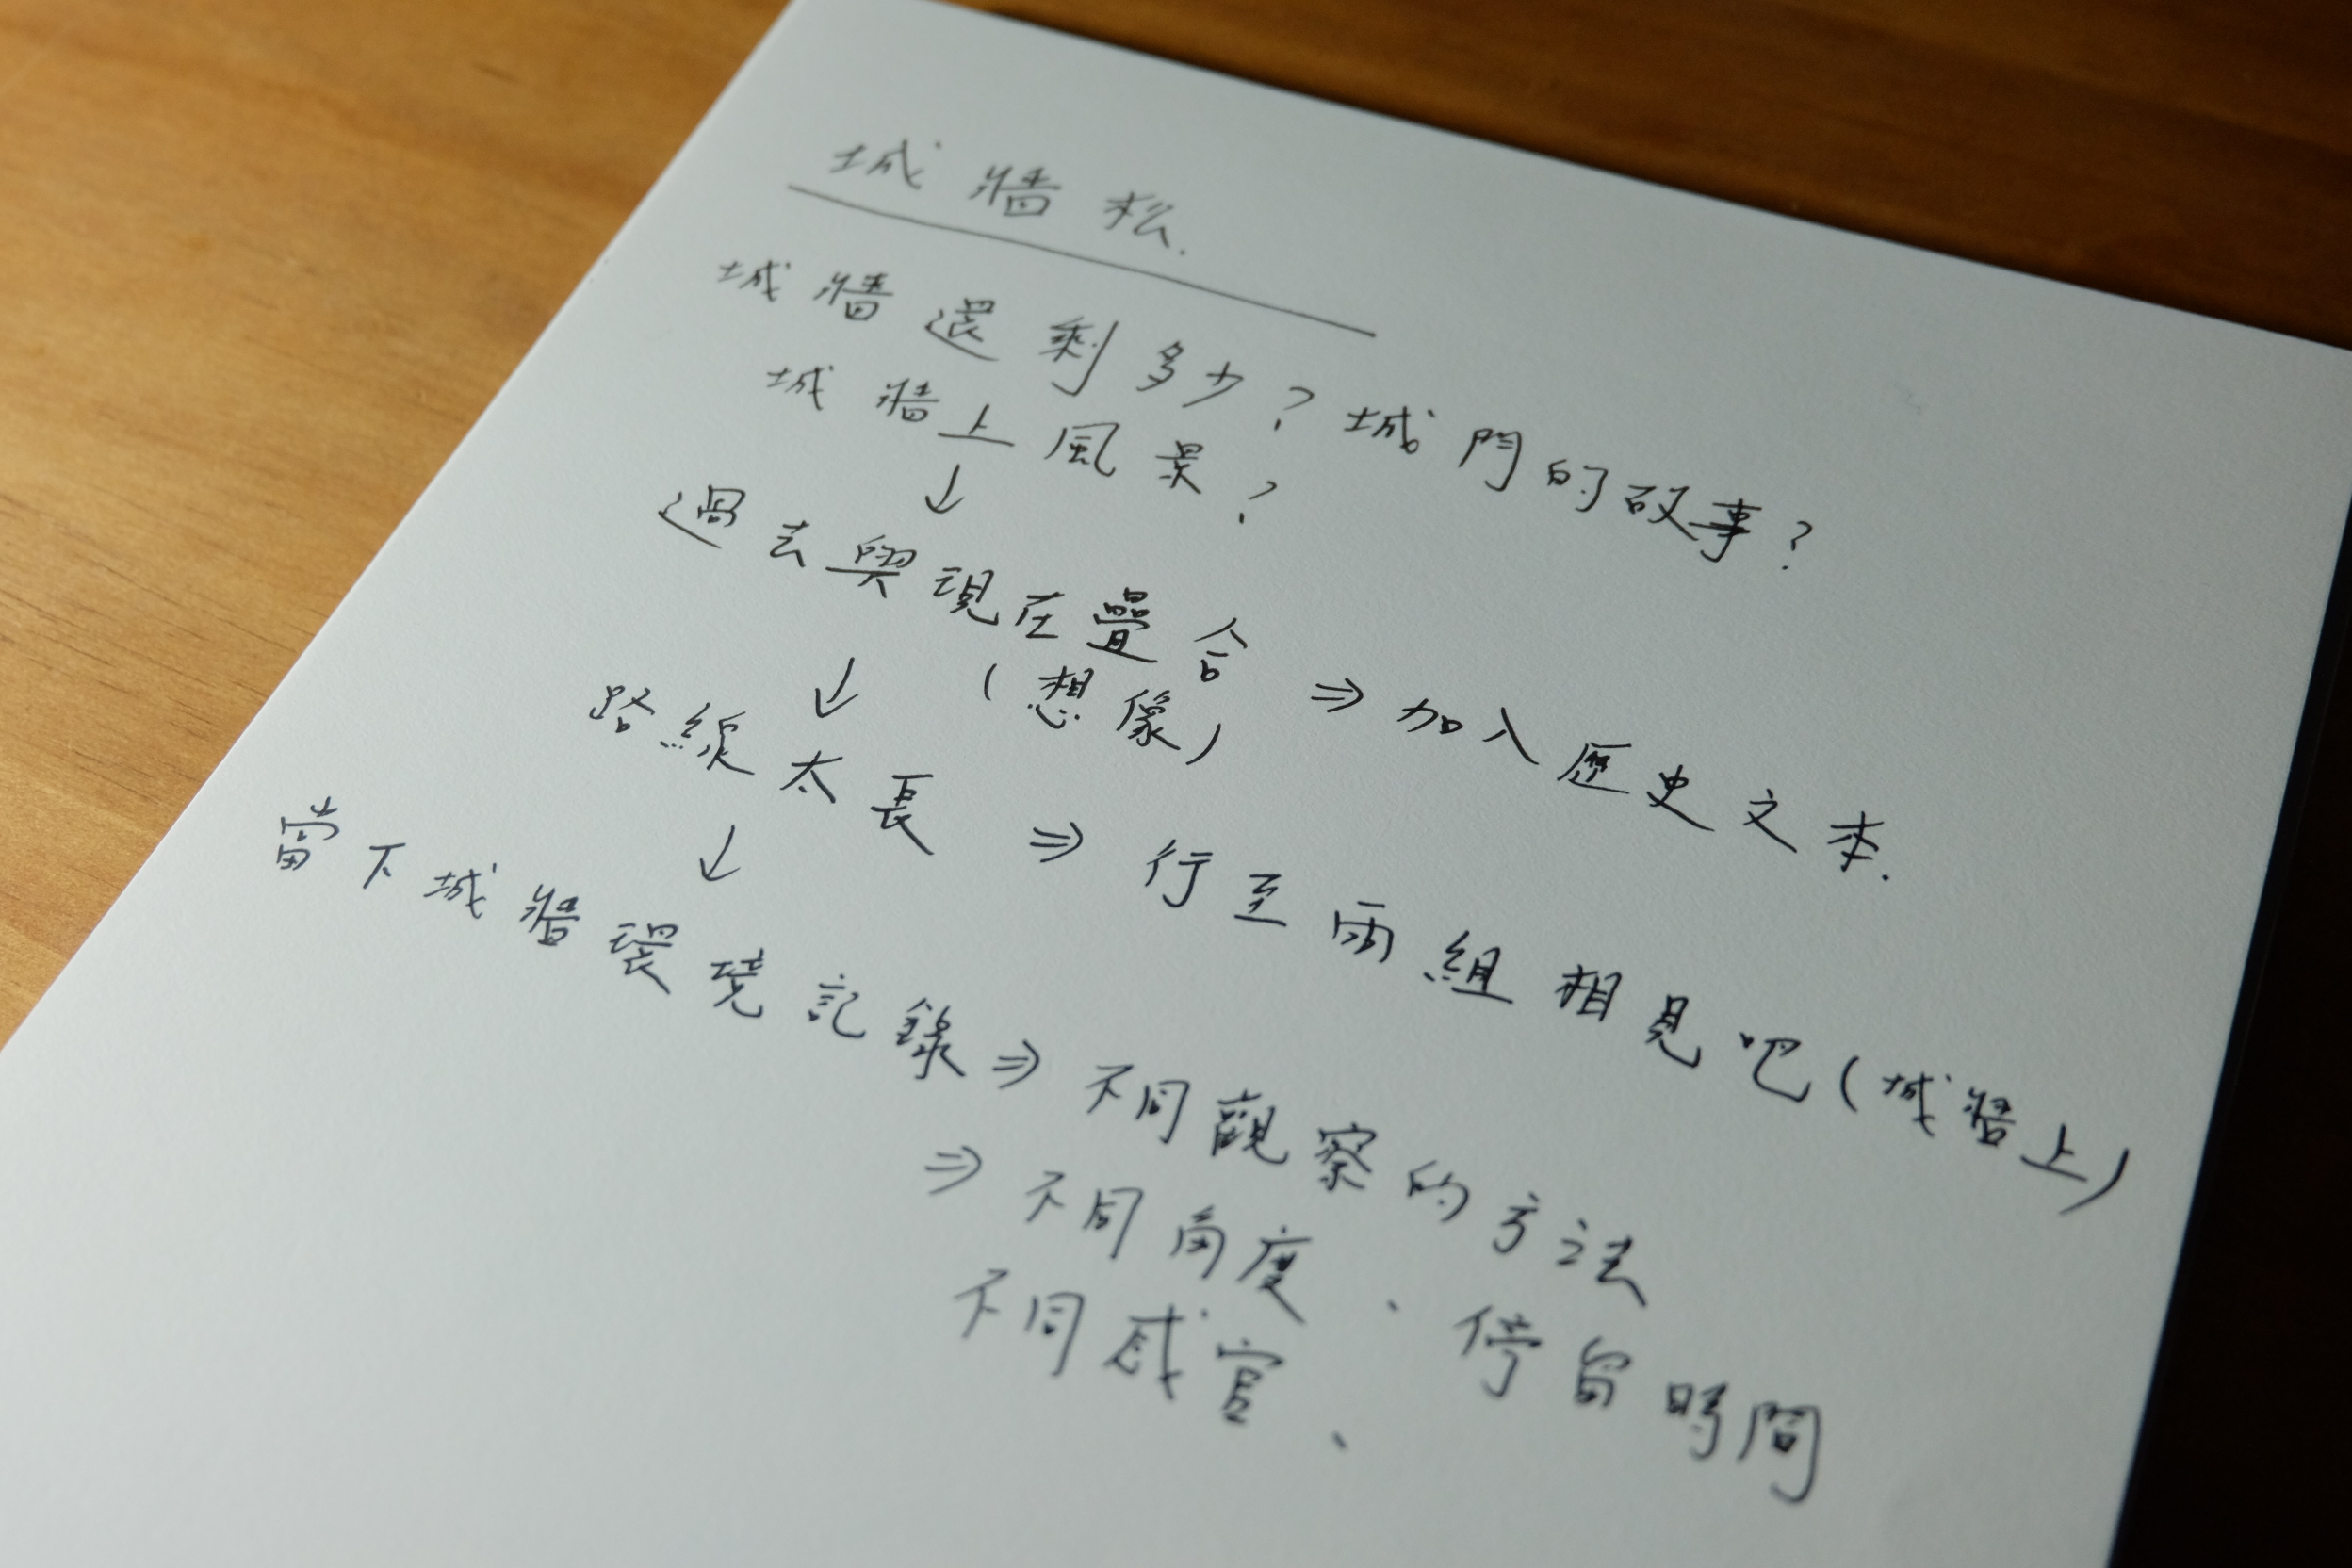 城牆松.
城牆還剩多少？城門的故事？
城牆上風景？
↓
過去與現在疊合 ⇒ 加入歷史文本.
(想像)
↓
路線太長 ⇒ 行至兩組相見吧(城牆上)
↓
當下城牆環境記錄 ⇒ 不同觀察的方法
⇒ 不同角度、停留時間
不同感官、